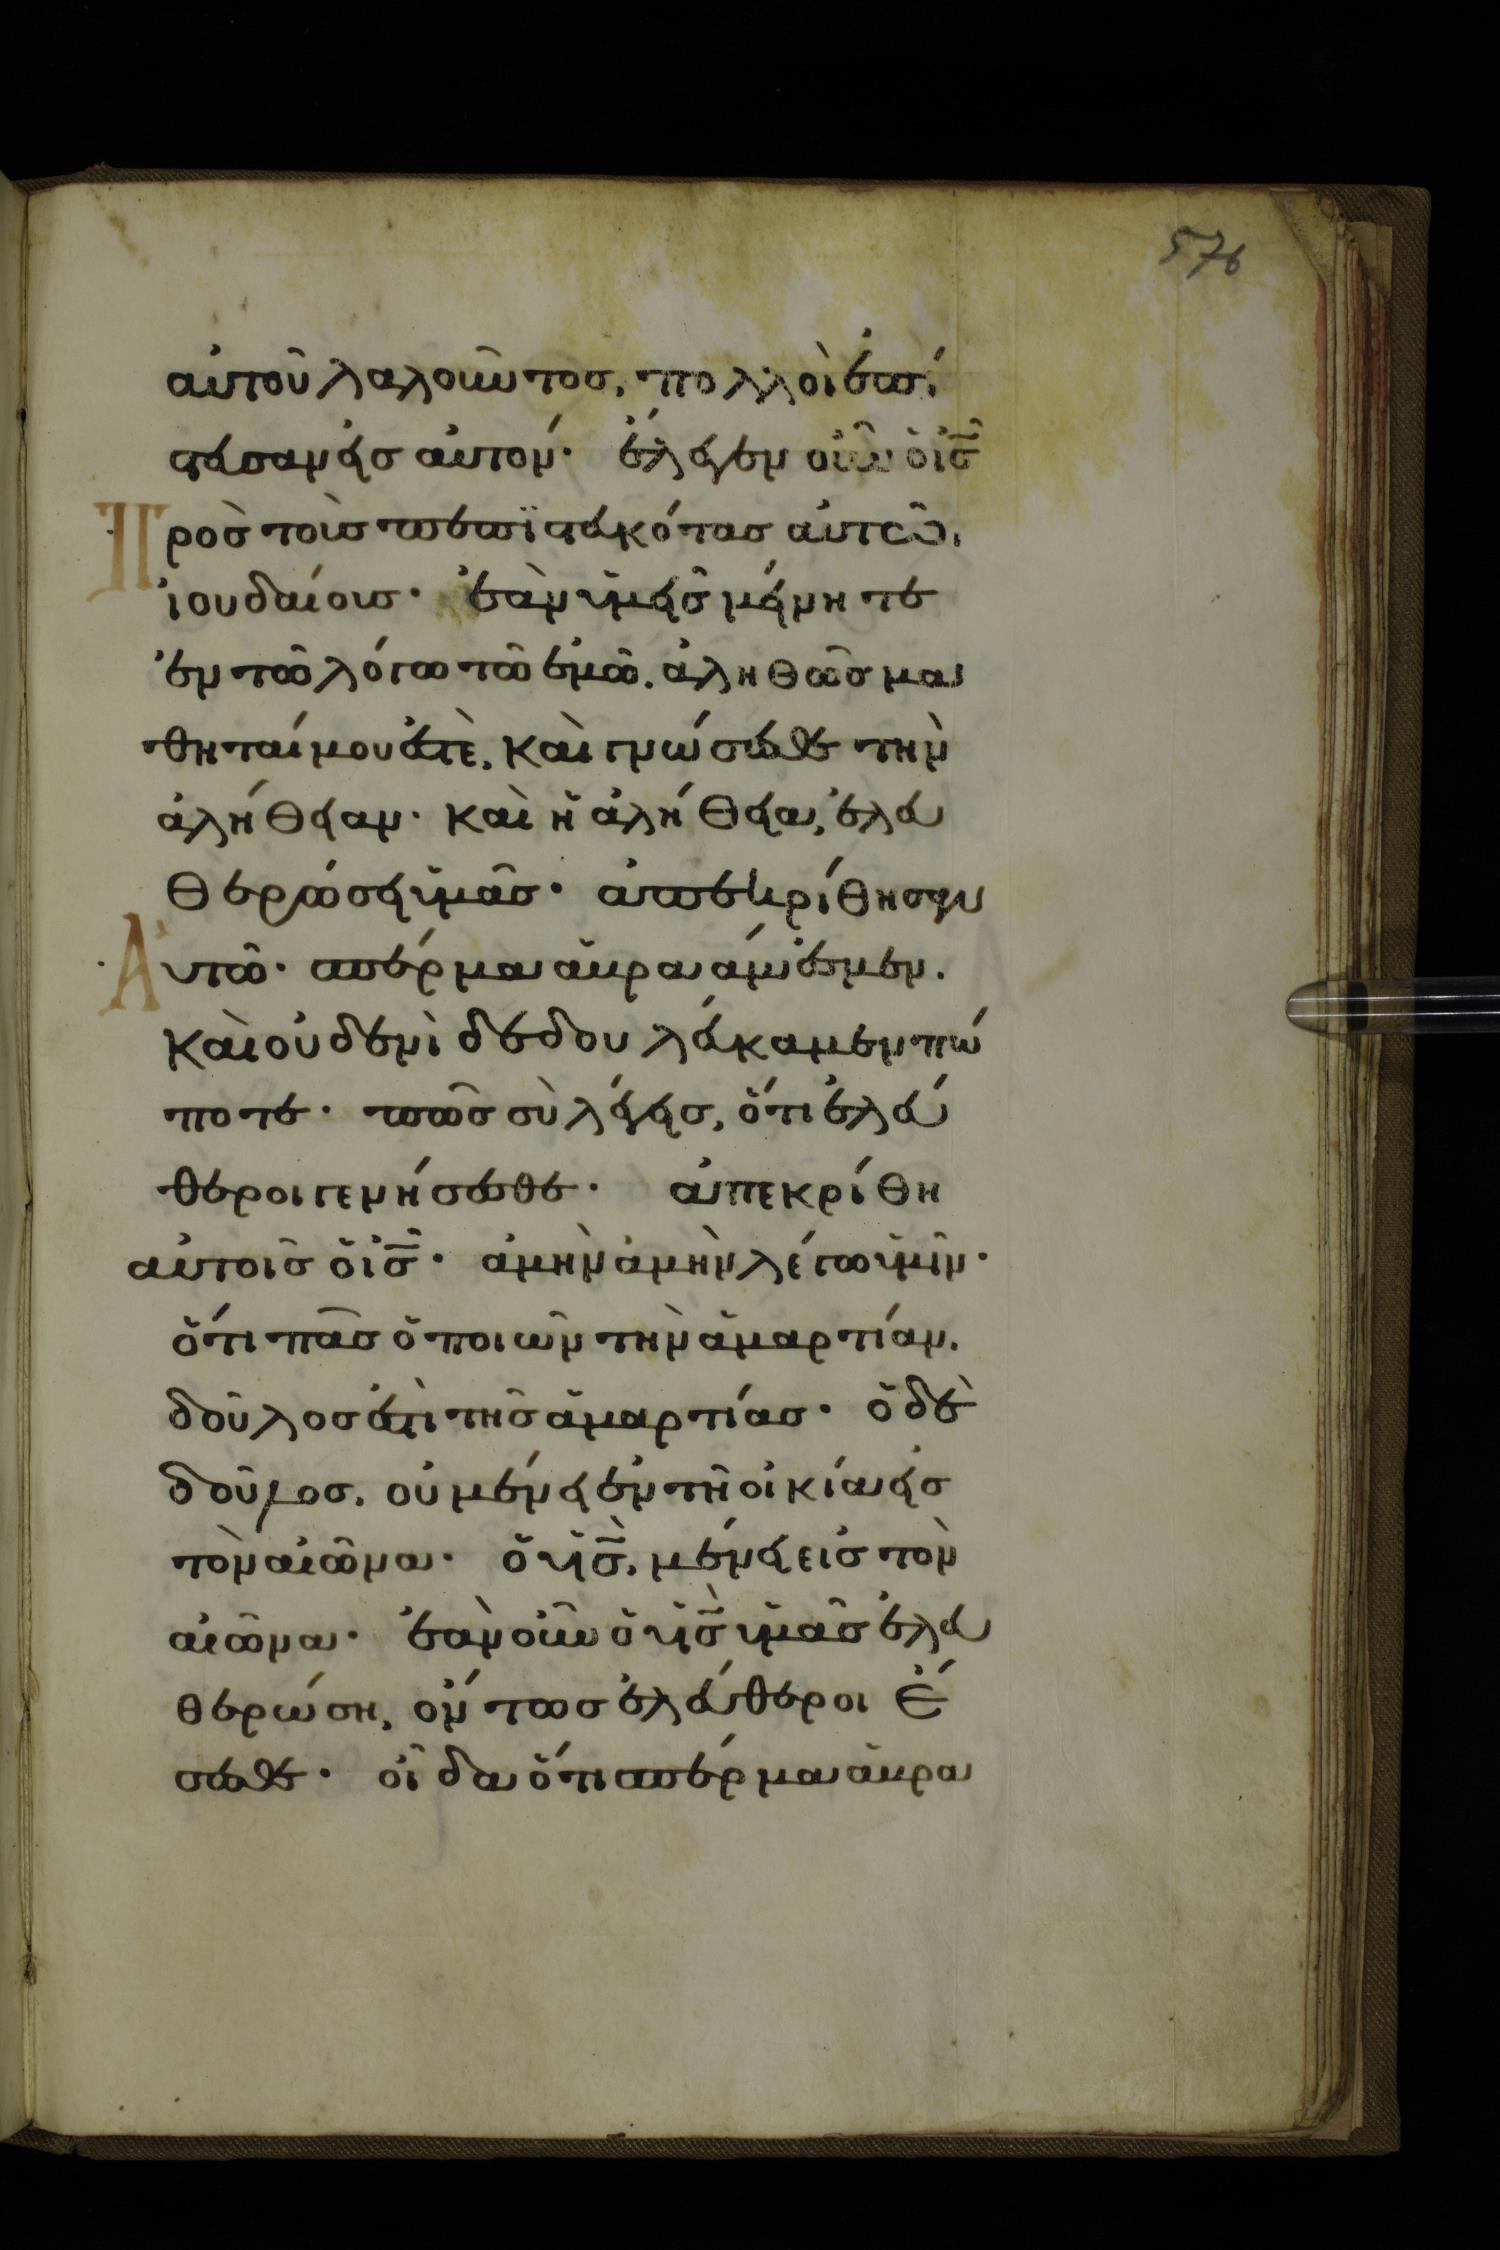 576
αὐτοῦ λαλοῦντοσ, πολλοὶ ἐπί
στευσαν εἰσ αὐτόν· ἔλεγεν οὖν ὁ ἰ̅σ̅
Πρὸσ τοὺσ πεπϊστευκότασ αὐτῶ,
ἰουδαίουσ· ἐὰν ὑμεῖσ μείνητε
ἐν τῶ λόγω τῶ ἐμῶ. ἀληθῶσ μα
θηταί μου ἐστὲ, καὶ γνώσεσθε τὴν
ἀλήθειαν· καὶ ἡ ἀλήθεια, ἐλευ
θερώσει ὑμᾶσ· ἀπεκρίθησαν
Ἀυτῶ· σπέρμα ἀβραάμ ἐσμεν.
καὶ οὐδενὶ δεδουλεύκαμεν πώ
ποτε· πῶσ σὺ λέγεισ, ὅτι ἐλεύ
θεροι γενήσεσθε· ἀπεκρίθη
αὐτοῖσ ὁ ἰ̅σ̅· ἀμὴν ἀμὴν λέγω ὑμῖν·
ὅτι πᾶσ ὁ ποιῶν τὴν ἁμαρτίαν.
δοῦλοσ ἐστὶ τῆσ ἁμαρτίασ· ὁ δὲ
δοῦλοσ, οὐ μένει ἐν τῆ οἰκία εἰσ
τὸν αἰῶνα· ὁ ὑ̅σ̅, μένει εἰσ τὸν
αἰῶνα· ἐὰν οὖν ὁ ὑ̅σ̅ ὑμᾶσ ἐλευ
θερώση, ὄντωσ ἐλεύθεροι ἔ
σεσθε· οἶδα ὅτι σπέρμα ἀβρα